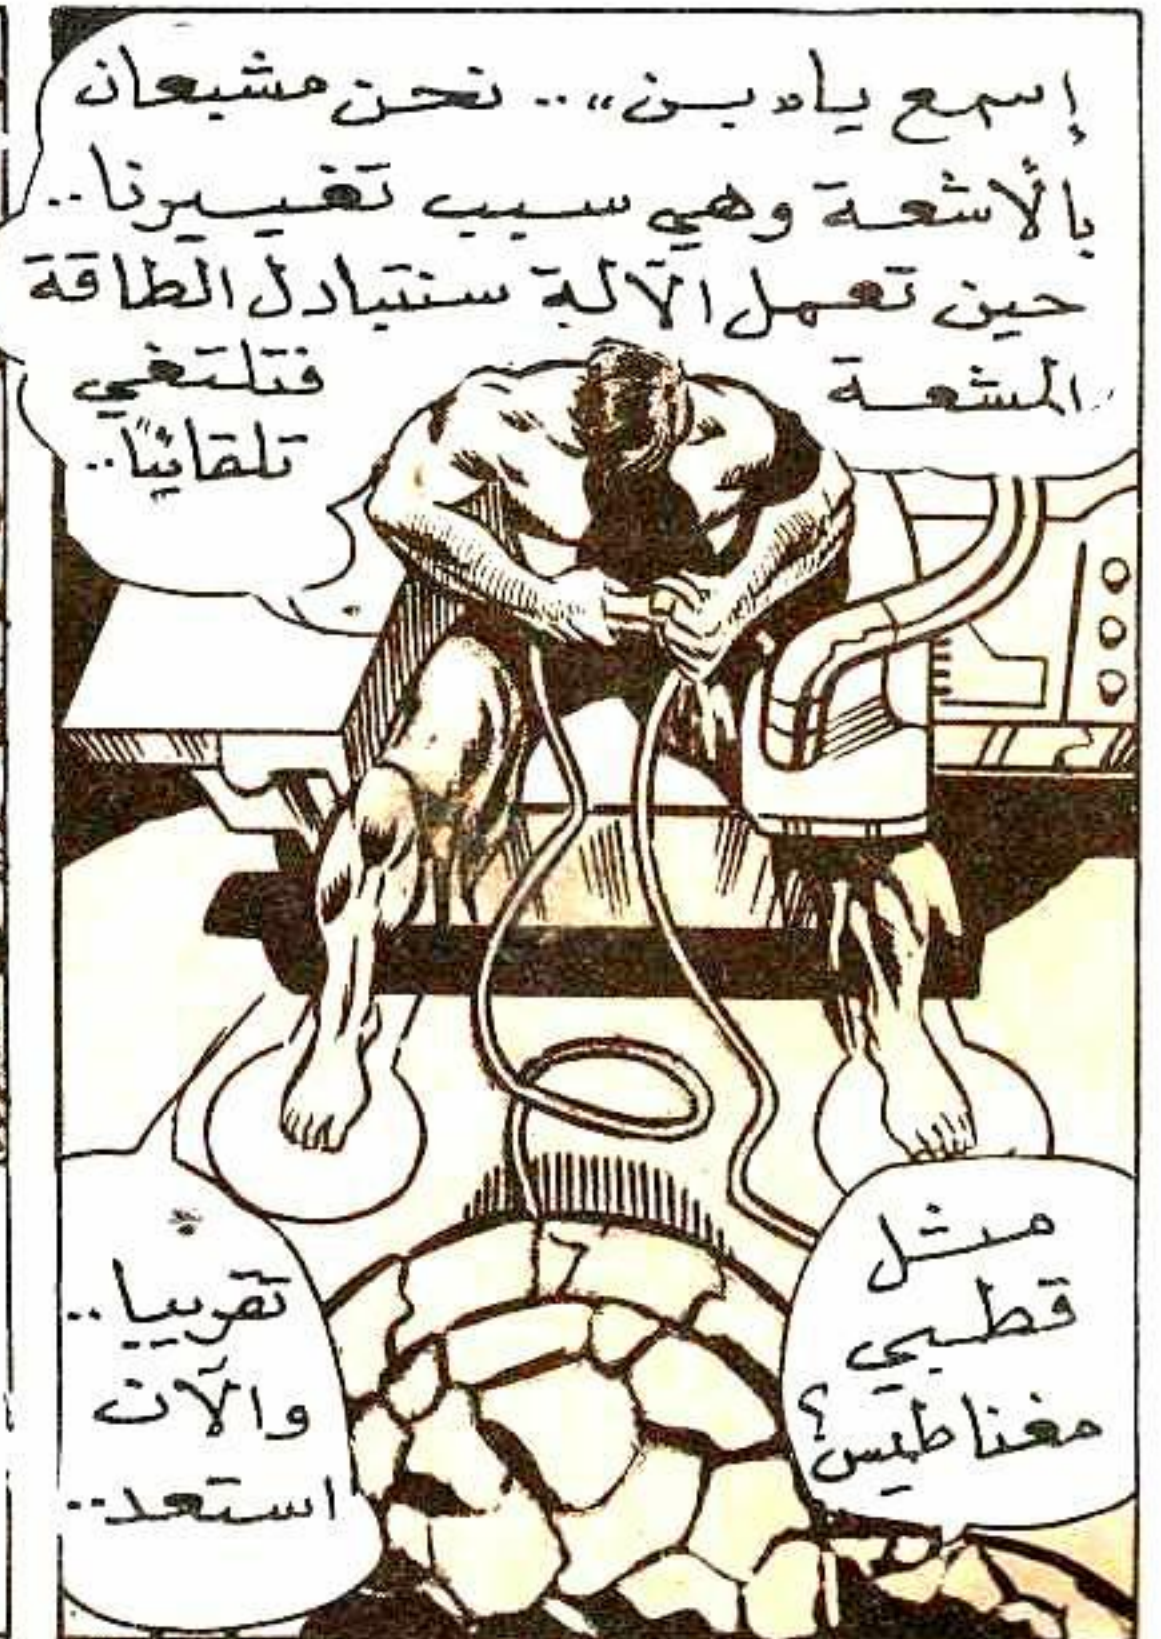 إسمع يا «بن».. نحن مشبعان
بالأشعة وهي سبب تغييرنا..
حين تعمل الآلة سنتبادل الطاقة
المشعة فتلتغي
تلقائيًا..
مثل
قطبي
مغناطيس؟
تقريبا..
والآن
استعد..